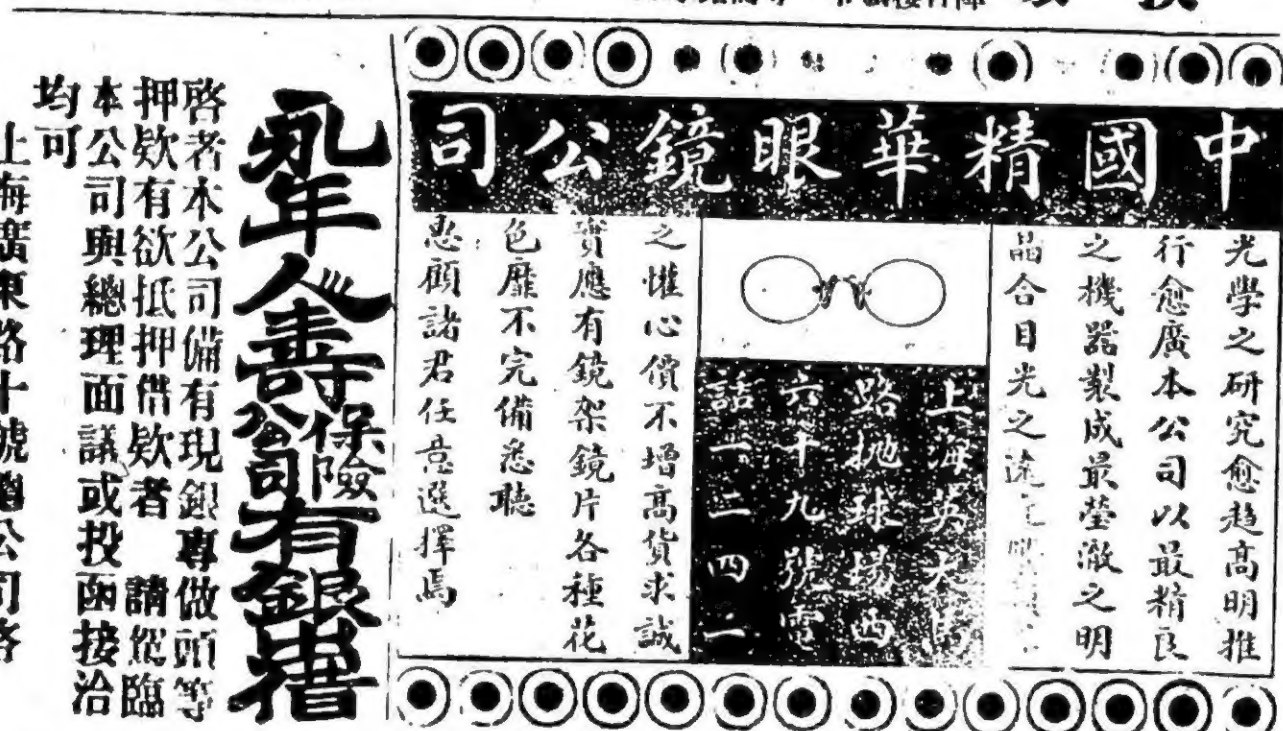 中國精華眼鏡公司
光學之研究愈趋高明推
行愈廣本公司以最精良
之機器製成最瑩澈之明
晶合目光之遠
上海英大馬
路拋球場西
六十九號電
話一二四二
之懽心價不增高貨求誠
實應有鏡架鏡片各種花
色靡不完備悉聽
惠顧諸君任意選擇焉
永年人壽保險公司有銀借
啓者本公司備有現銀專做頭等
押欵有欲抵押借欵者 請駕臨
本公司與總理面議或投函接洽
均可
上海廣東路十號總公司啓